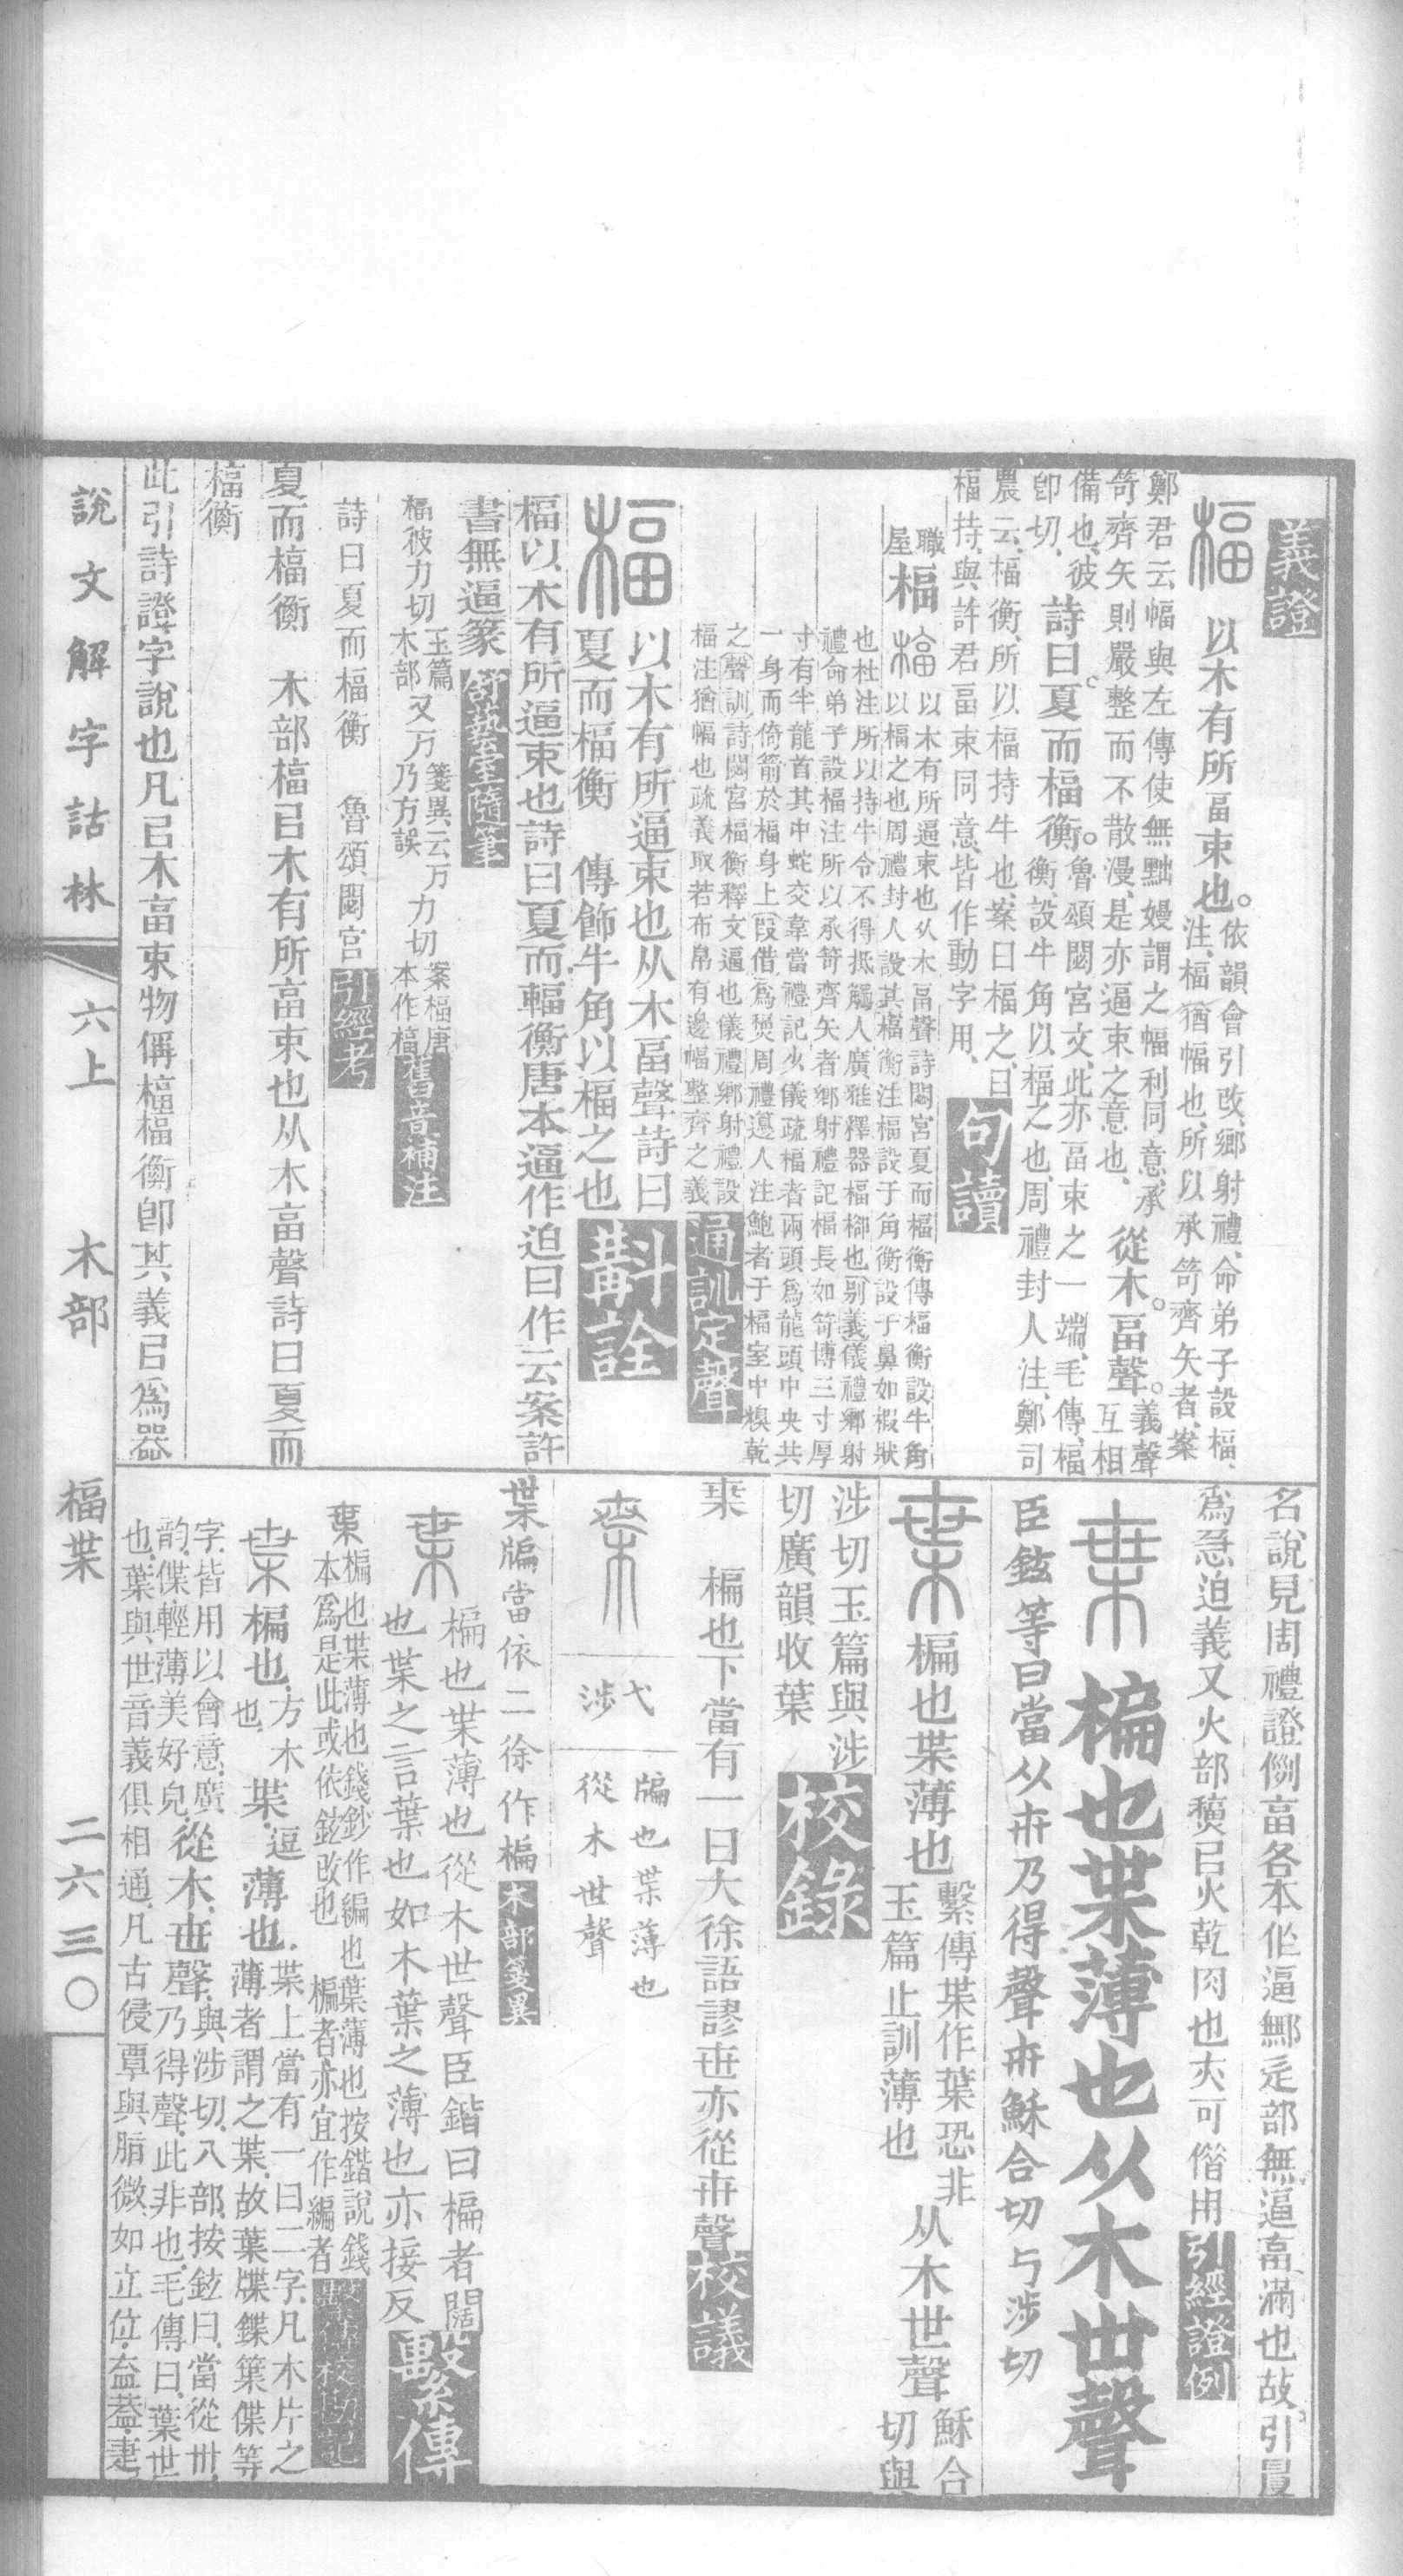 義證
楅 以木有所畐束也。依韻會引改、鄉射禮、命弟子設楅、
注、楅猶幅也、所以承笴齊矢者、案
鄭君云幅與左傳使無黜嫚謂之幅利同意、承
笴齊矢則嚴整而不散漫、是亦逼束之意也、從木。畐聲。義聲互相
備也、彼卽切、詩曰。夏而楅衡。魯頌閟宮文、此亦畐束之一端、毛傳、楅
衡、設牛角以楅之也、周禮封人注、鄭司
農云、楅衡、所以楅持牛也、案曰楅之、曰
楅持、與許君畐束同意、皆作動字用、句讀
職屋楅 楅 以木有所逼束也从木畐聲詩閟宮夏而楅衡傳楅衡設牛角
以楅之也周禮封人設其楅衡注楅設于角衡設于鼻如椵狀
也杜注所以持牛令不得抵觸人廣雅釋器楅榔也别義儀禮鄉射
禮命弟子設楅注所以承笴齊矢者鄉射禮記楅長如笴博三寸厚
寸有半龍首其中蛇交韋當禮記少儀疏楅者兩頭爲龍頭中央共
一身而倚箭於楅身上叚借爲煏周禮籩人注鮑者于楅室中糗乾
之聲訓詩閟宮楅衡釋文逼也儀禮鄉射禮設
楅注猶幅也疏義取若布帛有邊幅整齊之義通訓定聲
楅 以木有所逼束也从木畐聲詩曰
夏而楅衡 傳飾牛角以楅之也斠詮
楅以木有所逼束也詩曰夏而輻衡唐本逼作迫曰作云案許
書無逼篆舒藝室隨筆
楅彼力切玉篇木部又万乃方誤箋異云万力切案楅唐本作楅舊音補注
詩曰夏而楅衡 魯頌閟宮引經考
夏而楅衡 木部楅㠯木有所畐束也从木畐聲詩曰夏而
楅衡
此引詩證字說也凡㠯木畐束物偁楅楅衡卽其義㠯爲器
名說見周禮證例畐各本作逼鄦辵部無逼畐滿也故引㬪
爲急迫義又火部㷶㠯火乾肉也亦可偕用引經證例
枼 楄也枼薄也从木世聲
臣鉉等曰當从卅乃得聲卅穌合切与涉切
枼 楄也枼薄也繫傳枼作葉恐非玉篇止訓薄也从木世聲穌合切與
涉切玉篇與涉切廣韻收葉校錄
枼 楄也下當有一曰大徐語謬世亦從卅聲校議
枼 弋涉 牑也葉薄也
從木世聲
葉牑當依二徐作楄木部箋異
枼 楄也枼薄也從木世聲臣鍇曰楄者闊
也枼之言葉也如木葉之薄也亦接反繫傳
葉楄也枼薄也錢鈔作編也葉薄也按鍇說錢
本爲是此或依鉉改也 楄者亦宜作編者繫傳校勘記
枼 楄也、方木也、枼、逗、薄也、枼上當有一曰二字、凡木片之
薄者謂之枼、故葉牒鍱箂偞等
字、皆用以會意、廣韵、偞、輕薄美好皃、從木、世聲、與涉切、八部、按鉉曰、當從卅、
乃得聲、此非也、毛傳曰、葉世
也、葉與世音義俱相通、凡古侵覃與脂微、如立位、盍葢、疌
說文解字詁林 六上 木部 楅枼 二六三〇